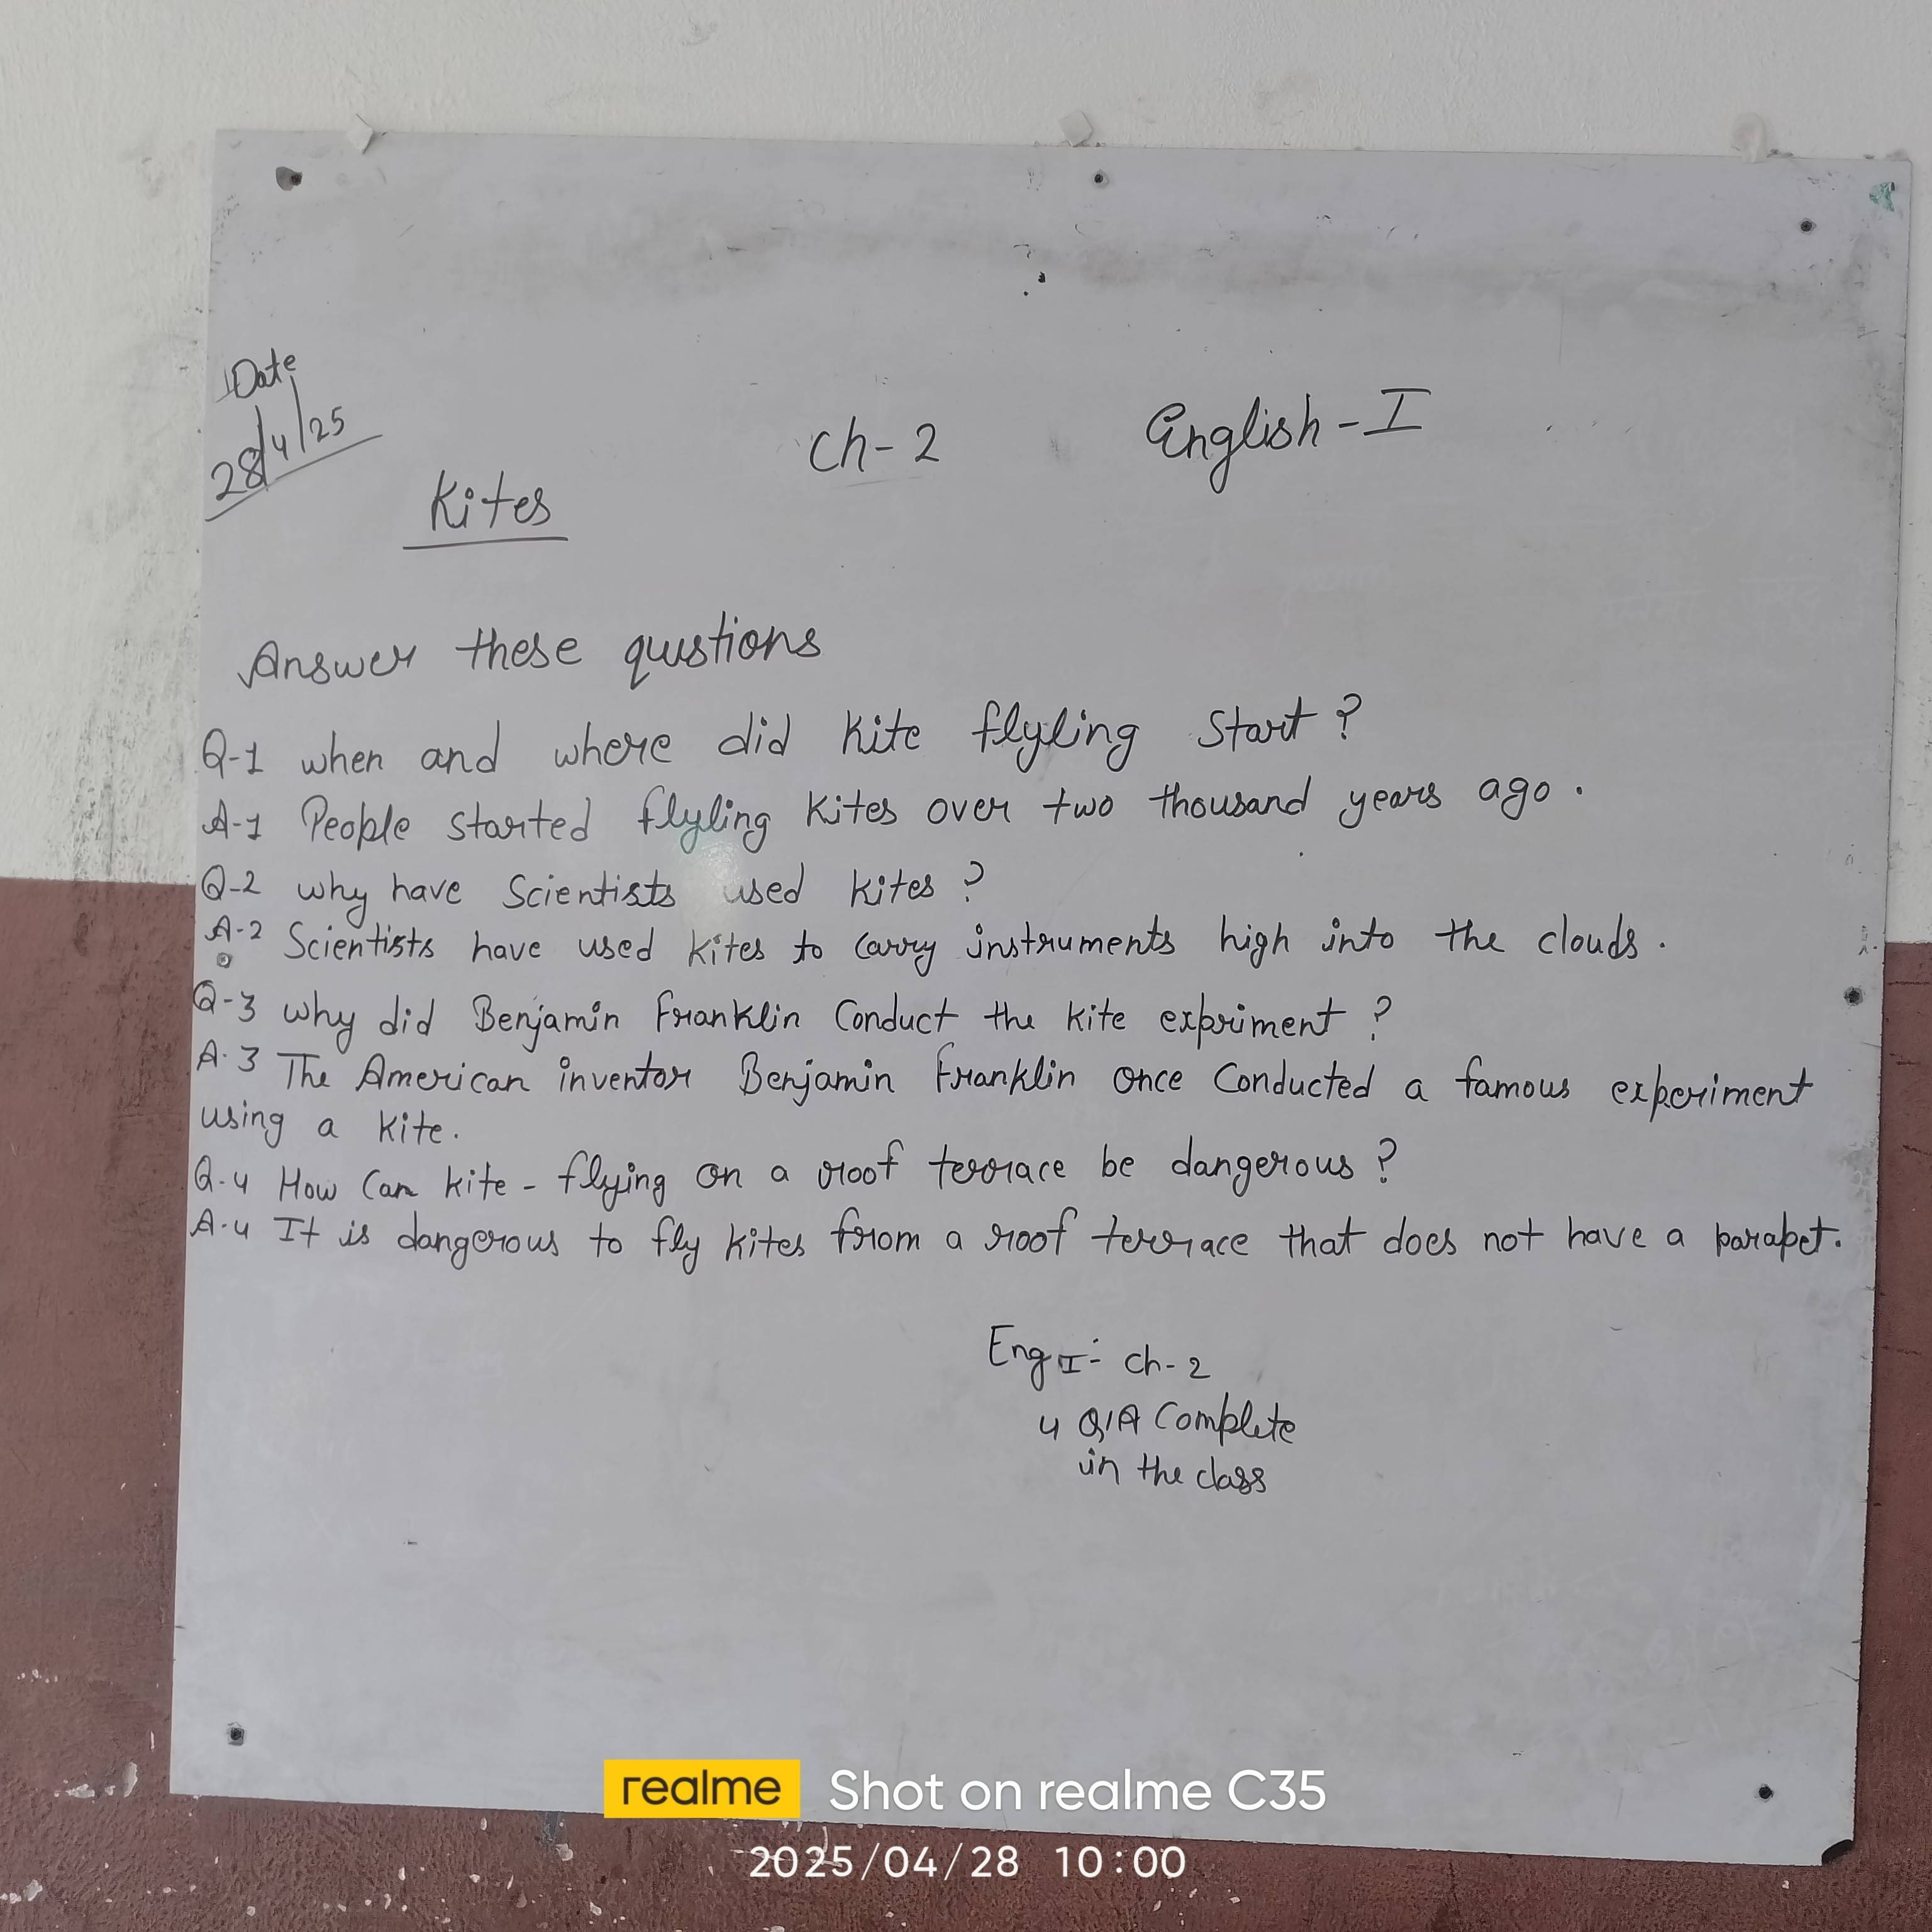 Date
28/4/25
Ch-2
English-I
Kites
Answer these qustions
Q-1 when and where did kite flyling Start?
A-1 People started flyling kites over two thousand years ago.
Q-2 why have Scientists used kites?
A-2 Scientists have used kites to carry instruments high into the clouds.
Q-3 why did Benjamin Franklin Conduct the kite expriment?
A-3 The American inventor Benjamin Franklin once Conducted a famous experiment
using a kite.
Q-4 How Can kite-flying on a roof terrace be dangerous?
A-4 It is dangerous to fly kites from a roof terrace that does not have a parapet.
Eng I :- ch-2
4 Q/A Complete
in the class
realme Shot on realme C35
2025/04/28 10:00